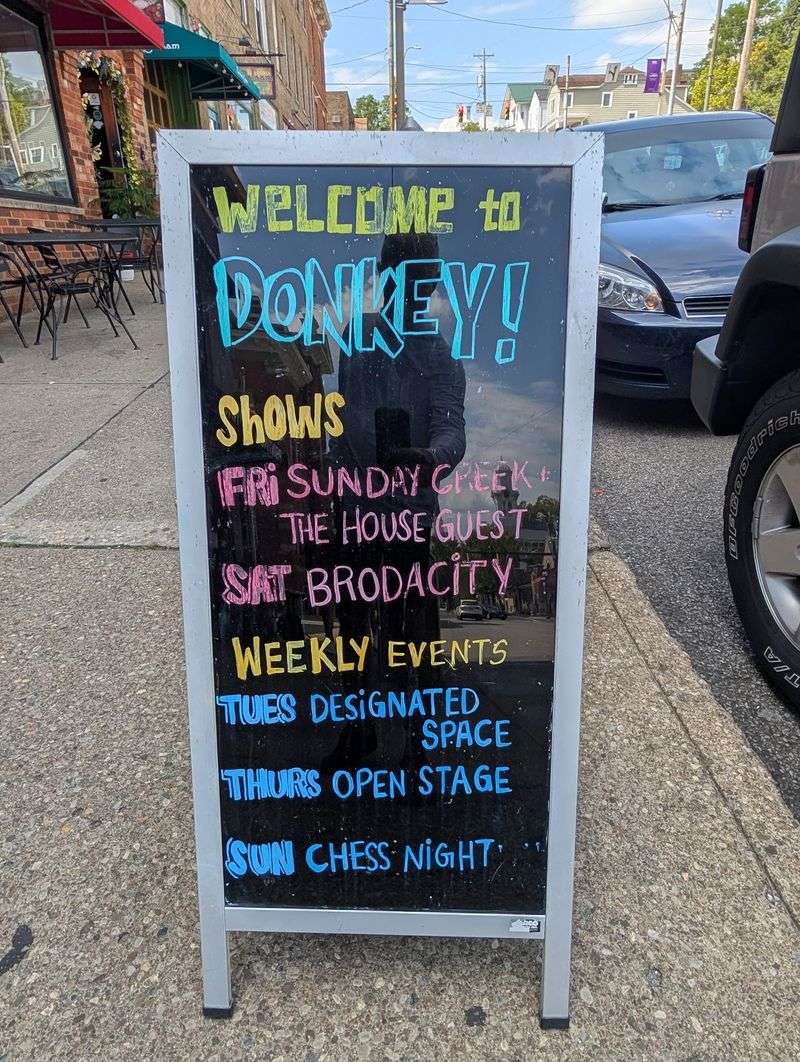 WELCOME to
DONKEY!
ShOWS
FRi SUNDAY CREEK +
THE HOUSE GUEST
SAT BRODACiTY
WEEKLY EVENTS
TUES DESiGNATED
SPACE
THURS OPEN STAGE
SUN CHESS NiGHT
BFGoodrich
T/A